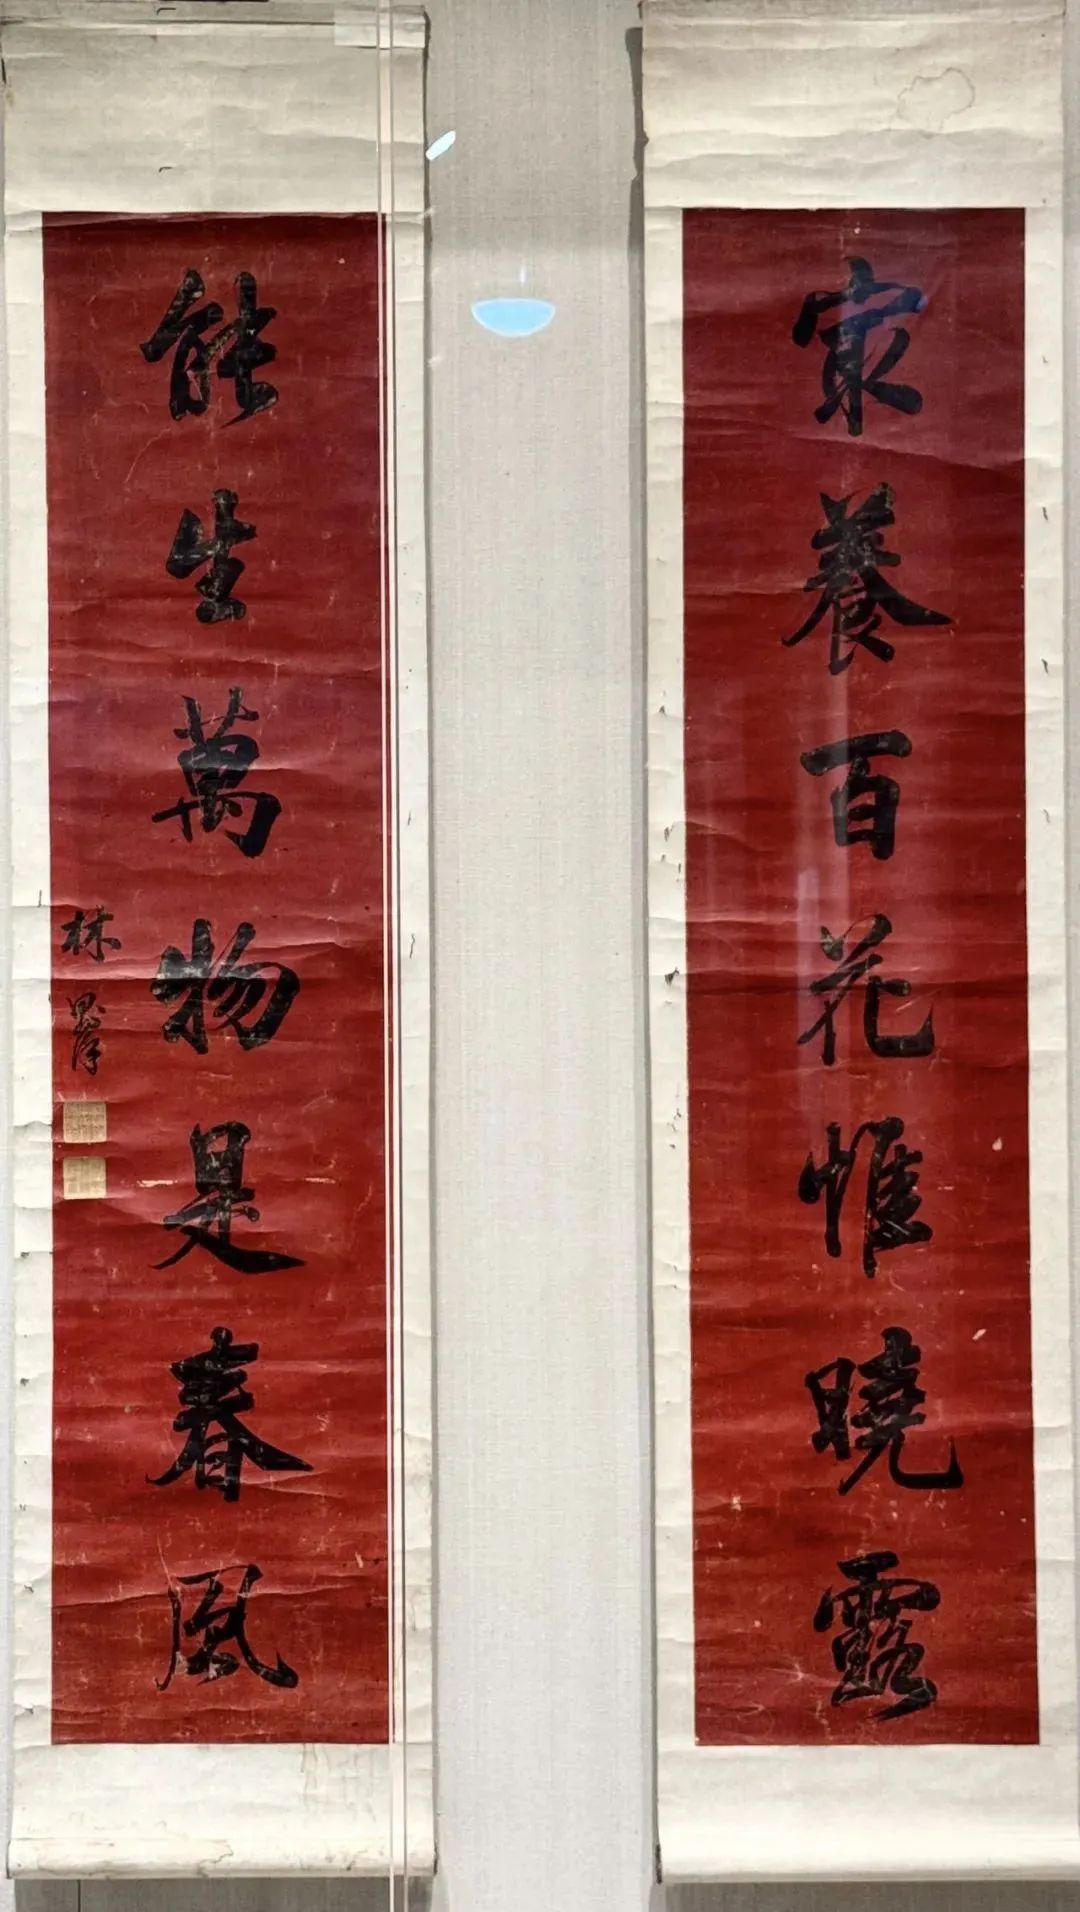 最養百花惟曉露
能生萬物是春風
林